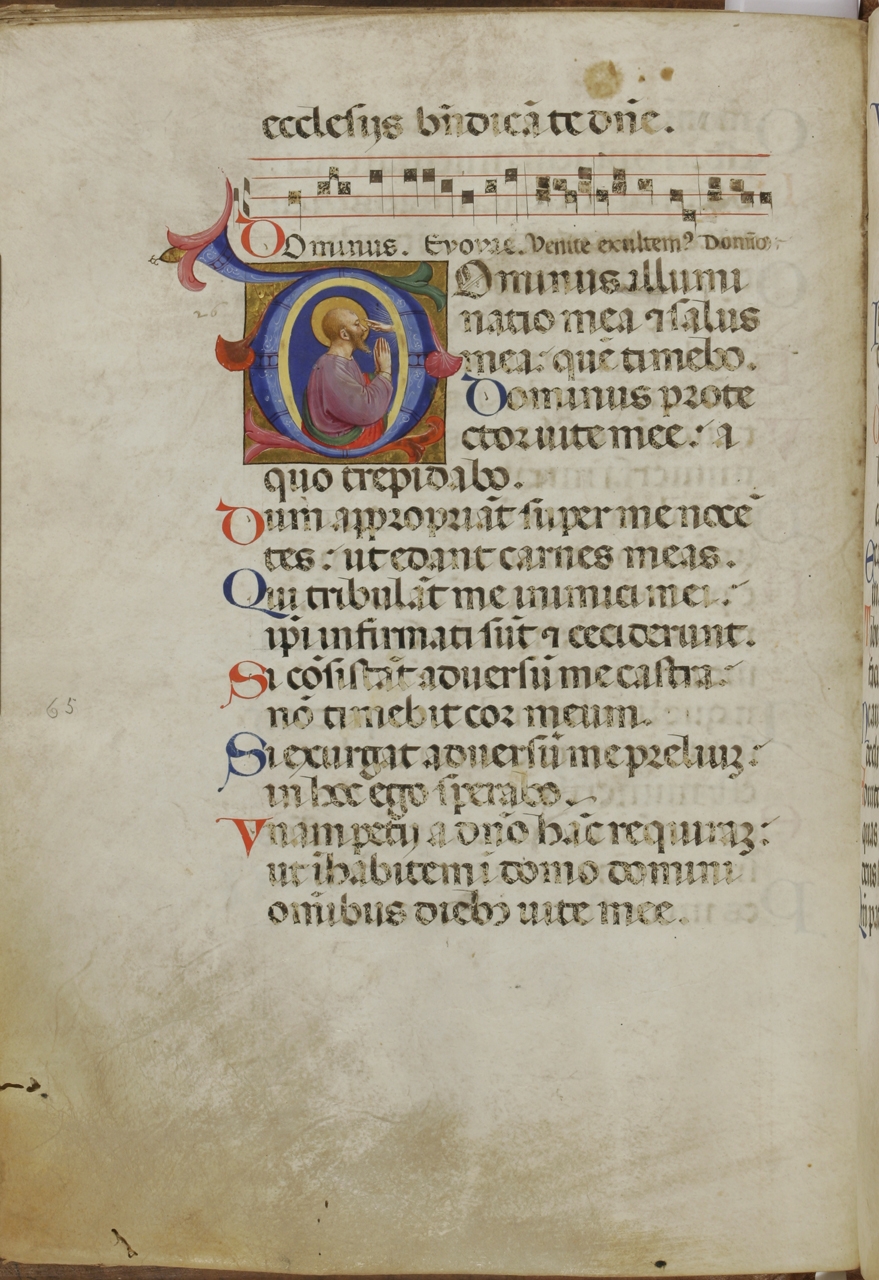 ecclesijs bn̄dicā te dn̄e.
DOminus. Evovae. Venite exultem⁹ Domino.
Ominus illumi
natio mea ⁊ salus
mea: quē timebo.
Dominus prote
ctor uite mee: a
quo trepidabo.
Dum appropriāt super me nocē
tes: ut edant carnes meas.
Qui tribulāt me inimici mei:
ip̄i infirmati sūt ⁊ ceciderunt.
Si cōsistāt aduersū me castra:
nō timebit cor meum.
Si exurgat aduersū me preliuꝫ:
in hoc ego sperabo.
Vnam petij a dn̄o hāc requiraꝫ:
ut īhabitem ī domo domini
omībus dieb⁹ uite mee.
65